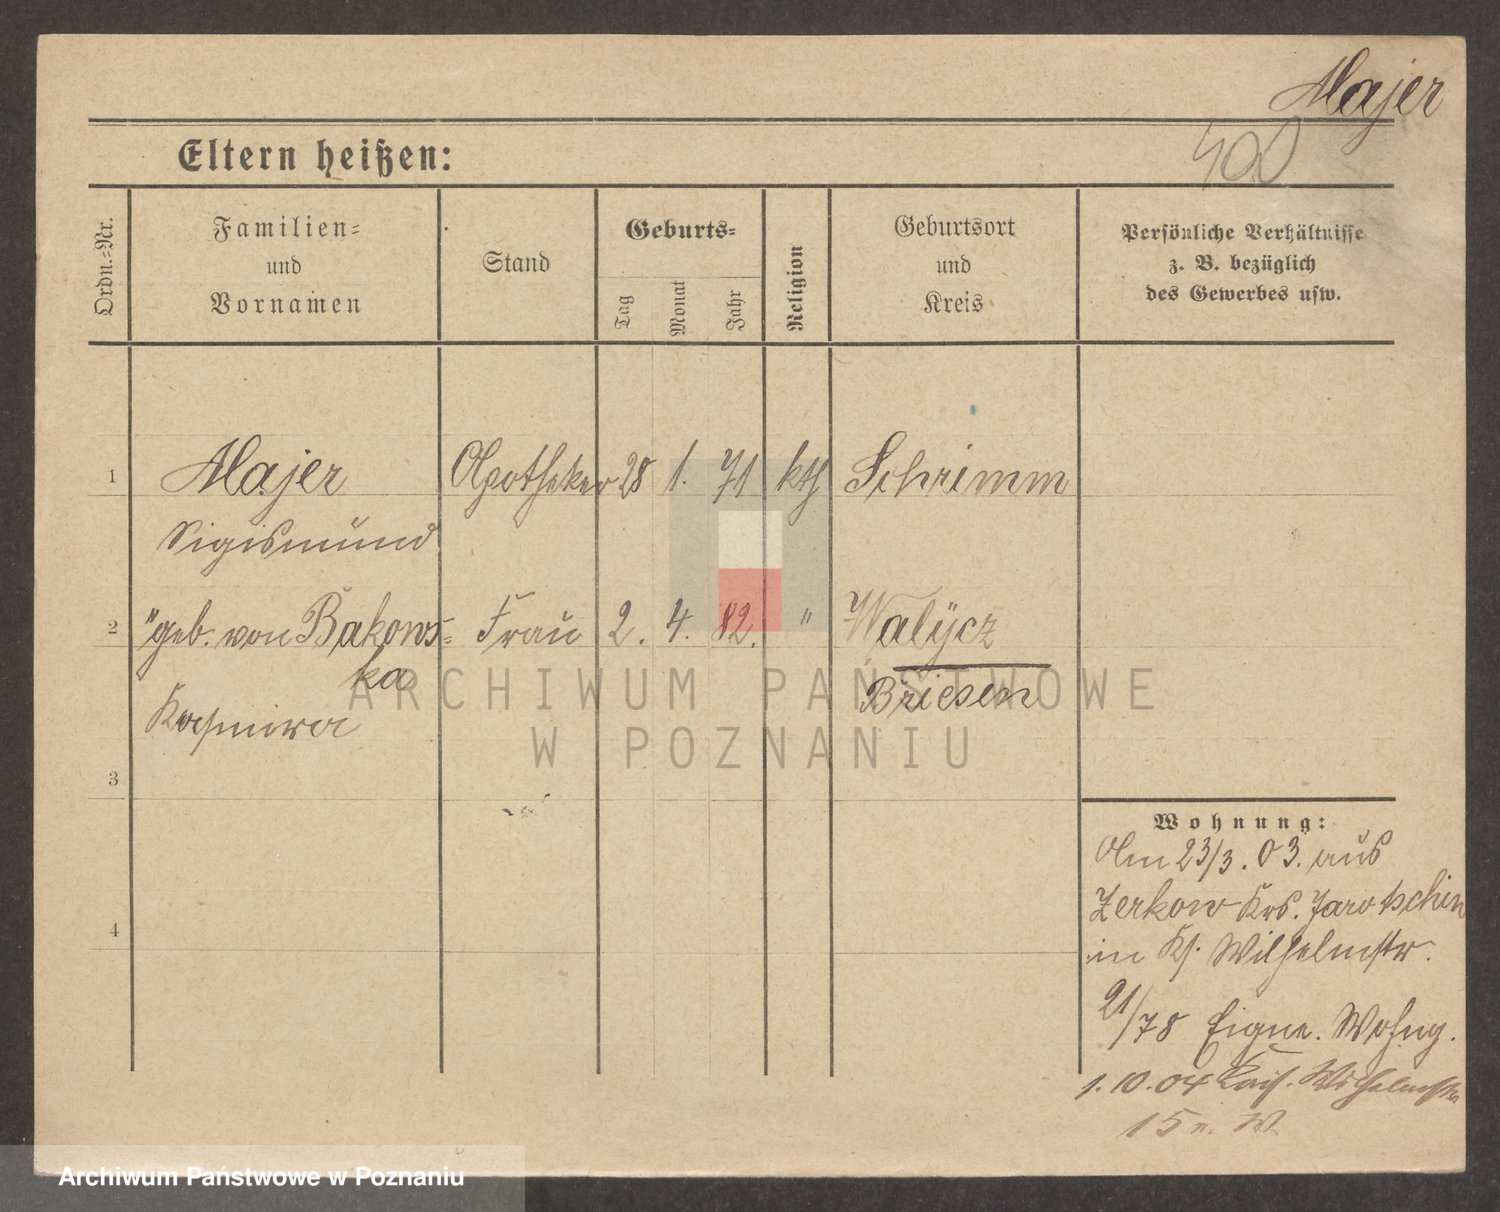 Majer
400
Eltern heißen:
Ordn.-Nr.
Familien- und Vornamen
Stand
Geburts-
Tag
Monat
Jahr
Religion
Geburtsort und Kreis
Persönliche Verhältnisse
z. B. bezüglich
des Gewerbes usw.
1 Majer Apotheker 28 1. 71 kth Schrimm
Sigismund
2 "geb. von Bakows- Frau 2. 4. 82. " Walÿcz
ka
Briesen
Kasimira
3
4
Wohnung:
Am 23/3. 03. aus
Zerkow Krs. Jarotschin
in Ks. Wilhelmstr.
21/78 Eigne. Wohng.
1.10.04 Kais. Wilhelmstr
15 n. W.
ARCHIWUM PAŃSTWOWE
W POZNANIU
Archiwum Państwowe w Poznaniu